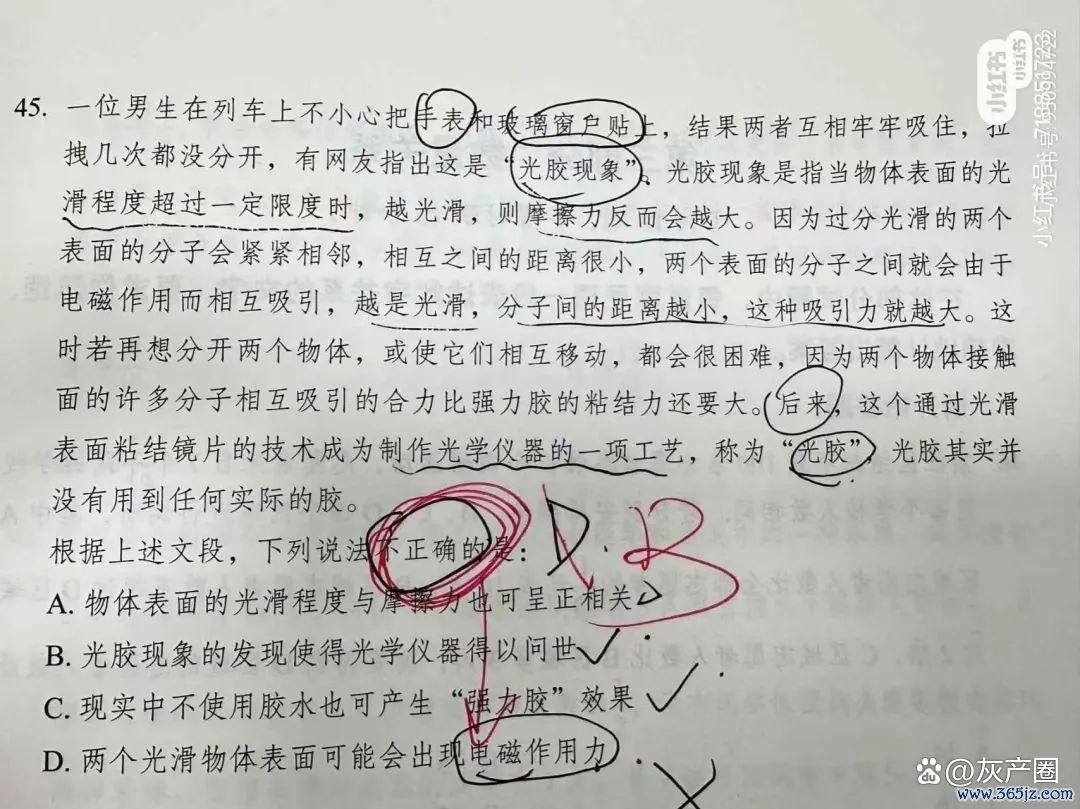 45. 一位男生在列车上不小心把手表和玻璃窗户贴上,结果两者互相牢牢吸住,拉
拽几次都没分开,有网友指出这是“光胶现象”。光胶现象是指当物体表面的光
滑程度超过一定限度时,越光滑,则摩擦力反而会越大。因为过分光滑的两个
表面的分子会紧紧相邻,相互之间的距离很小,两个表面的分子之间就会由于
电磁作用而相互吸引,越是光滑,分子间的距离越小,这种吸引力就越大。这
时若再想分开两个物体,或使它们相互移动,都会很困难,因为两个物体接触
面的许多分子相互吸引的合力比强力胶的粘结力还要大。后来,这个通过光滑
表面粘结镜片的技术成为制作光学仪器的一项工艺,称为“光胶”,光胶其实并
没有用到任何实际的胶。
根据上述文段,下列说法不正确的是:D. B
A. 物体表面的光滑程度与摩擦力也可呈正相关
B. 光胶现象的发现使得光学仪器得以问世
C. 现实中不使用胶水也可产生“强力胶”效果
D. 两个光滑物体表面可能会出现电磁作用力
小红书
小红书
小红书号
@灰产圈
www.365jz.com